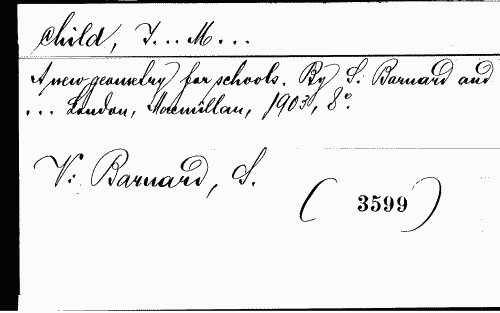 Child, J... M...
A new geometry for schools. By S. Barnard and
... London, Macmillan, 1903, 8º.
V: Barnard, S.
(3599)